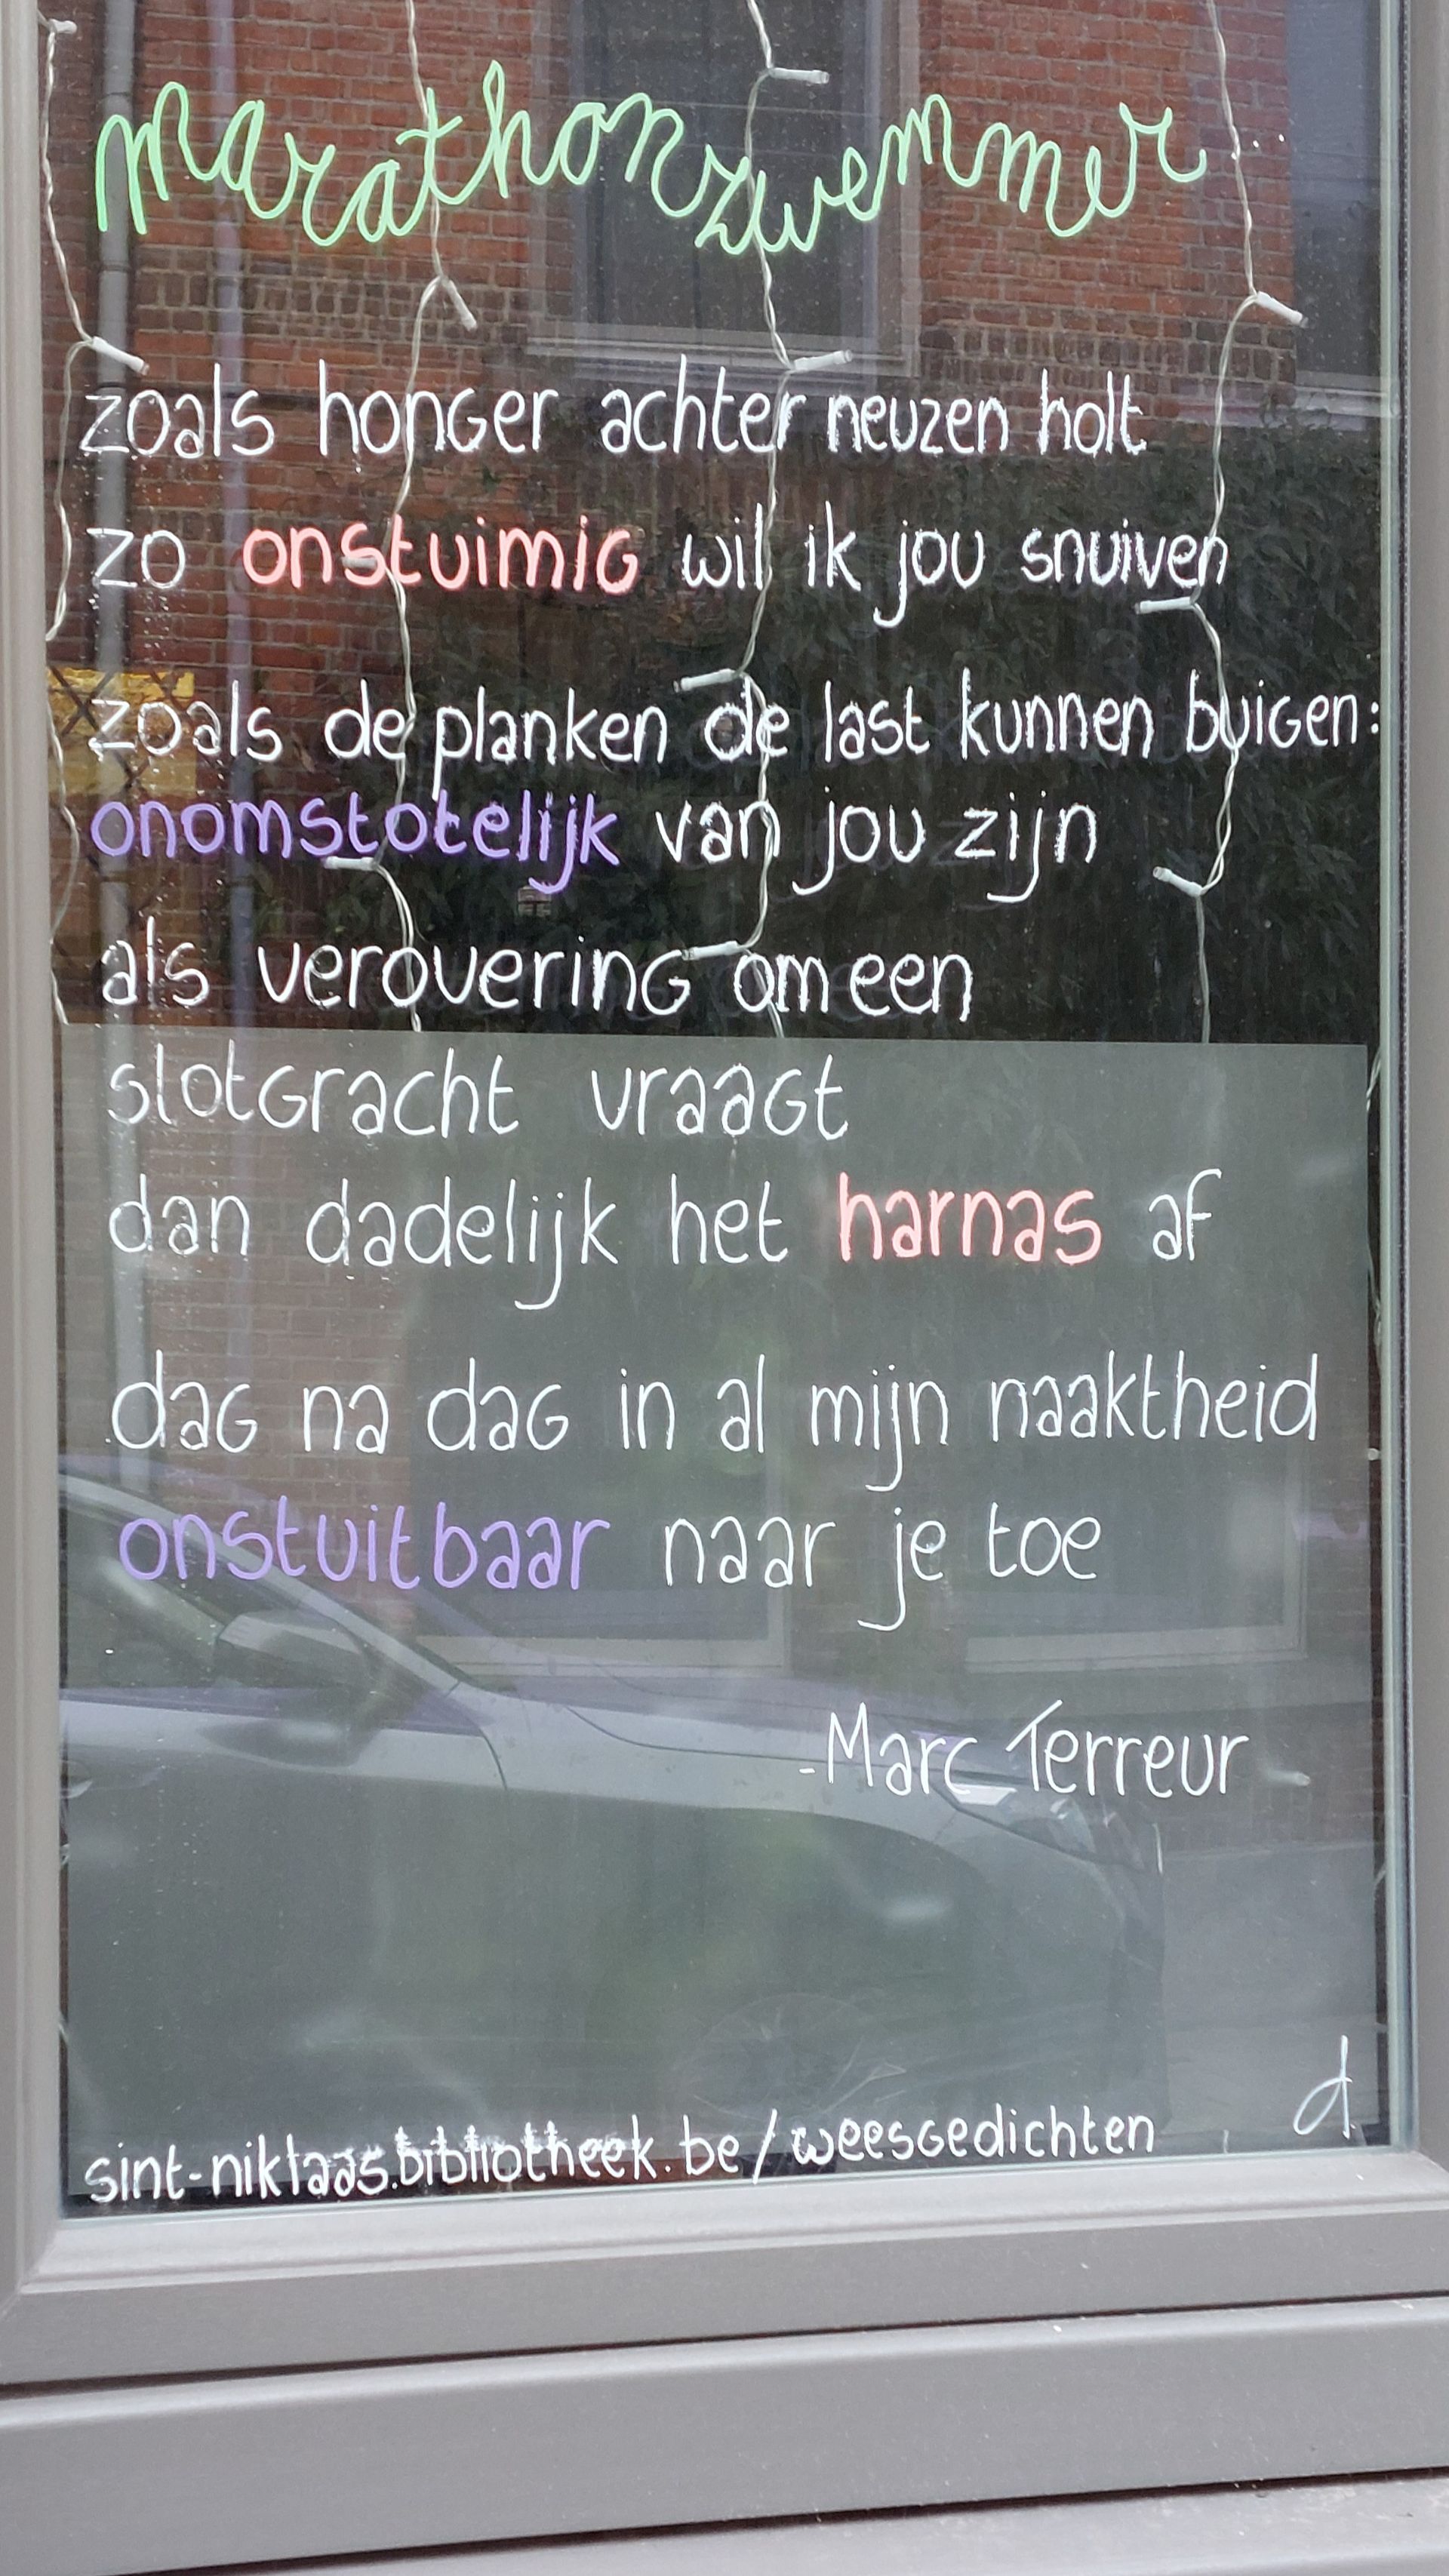 marathonzwemmer
zoals honger achter neuzen holt
zo onstuimig wil ik jou snuiven
zoals de planken de last kunnen buigen:
onomstotelijk van jou zijn
als verovering om een
slotgracht vraagt
dan dadelijk het harnas af
dag na dag in al mijn naaktheid
onstuitbaar naar je toe
-Marc Terreur
d
sint-niklaas.bibliotheek.be/weesgedichten